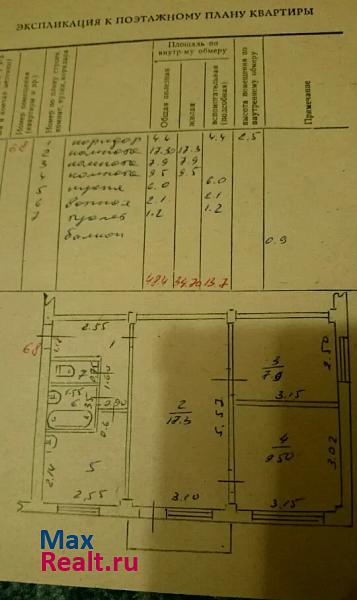 ЭКСПЛИКАЦИЯ К ПОЭТАЖНОМУ ПЛАНУ КВАРТИРЫ
Площадь по внутр-му обмеру
Общая полезная
жилая
вспомогательная (подсобная)
высота помещения по внутреннему обмеру
Примечание
коридор 4.4 4.4 2.5
комната 17.3 17.3
комната 7.9 7.9
комната 9.5 9.5
кухня 6.0 6.0
ванная 2.1 2.1
7 туалет 1.2 1.2
балкон 0.9
48.4 34.70 13.7
68
2.55
1
7
6
5
2.14
2.55
2
17.3
5.57
3.10
3
7.9
2.50
3.15
4
9.50
3.02
3.15
Max
Realt.ru